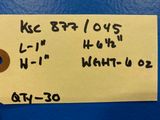 KSC 877/045
L-1" H-6½"
W-1" WGHT-6 OZ
QTY-30